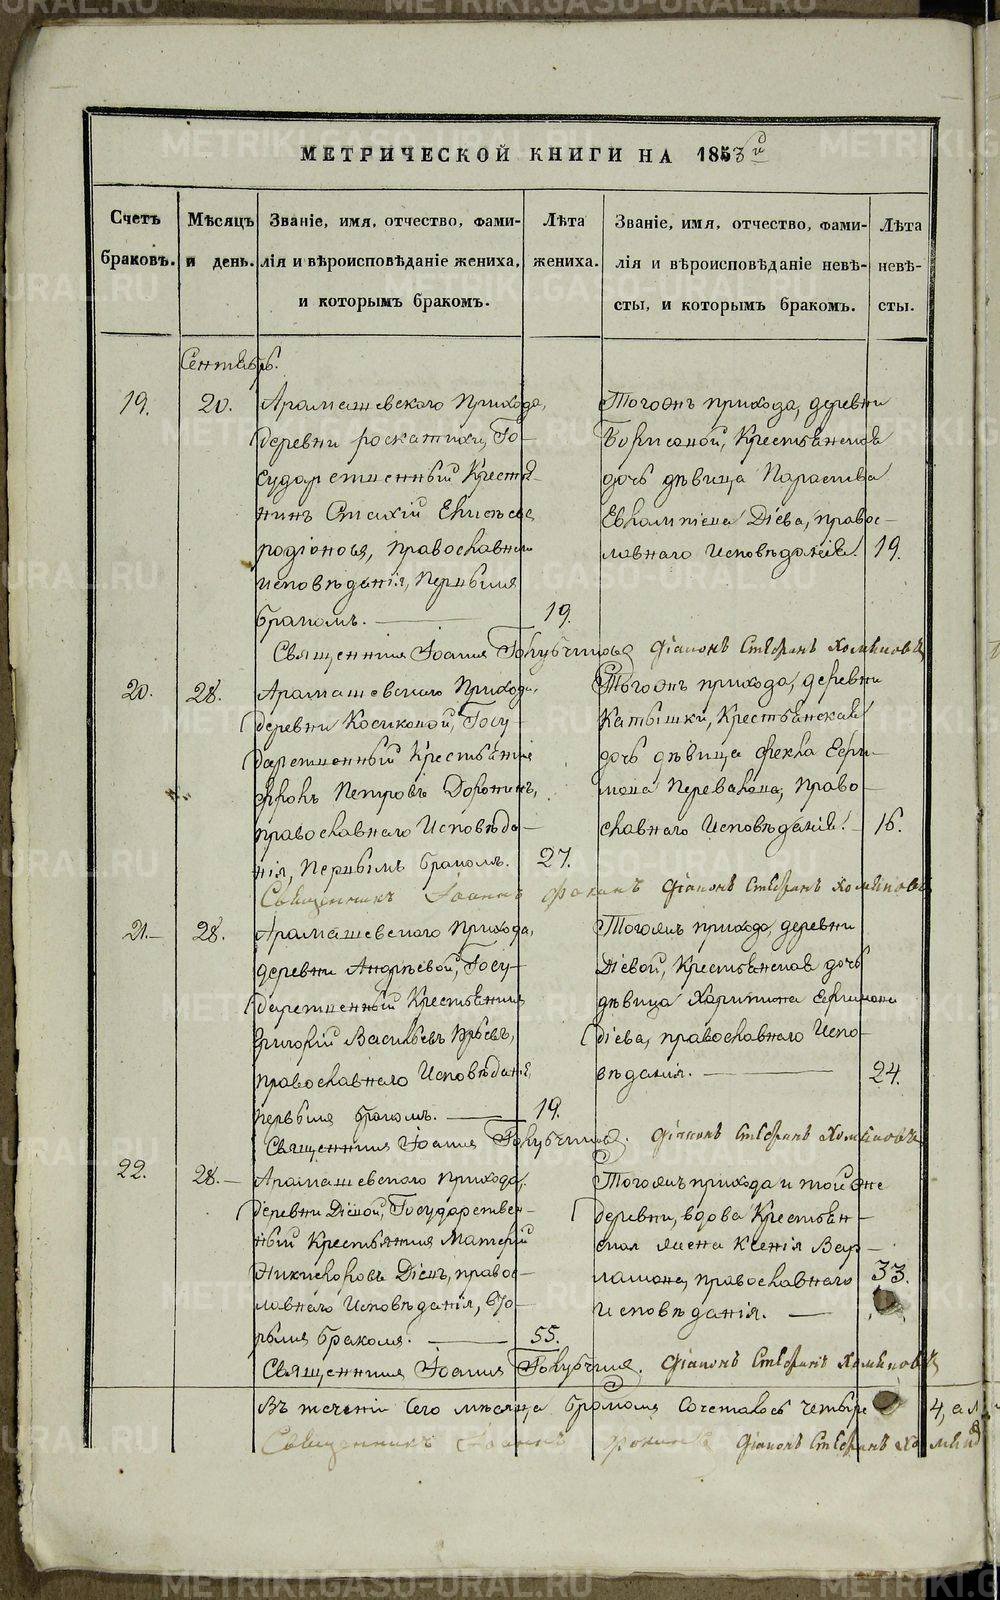 МЕТРИЧЕСКОЙ КНИГИ НА 1853й
Счетъ браковъ.
Мѣсяцъ и день.
Званіе, имя, отчество, фами-
лія и вѣроисповѣданіе жениха,
и которымъ бракомъ.
Лѣта
жениха.
Званіе, имя, отчество, фами-
лія и вѣроисповѣданіе невѣ-
сты, и которымъ бракомъ.
Лѣта
невѣ-
сты.
Сентябрь.
19.
20.
Арамашевскаго Прихода,
деревни Роскатихи, Го-
сударственный Крестья-
нинъ Стахій Елисѣевъ
Родіоновъ, Православнаго
исповѣданія, первымъ
бракомъ.
19.
Тогожъ прихода, деревни
Борисовой, Крестьянская
дочь дѣвица Параскева
Евлампіева Діева, правос-
лавнаго Исповѣданія.
19.
Священникъ Іоаннъ Голубчиковъ Діаконъ Стефанъ Хомяковъ
20.
28.
Арамашевскаго Прихода,
деревни Косиковой, Госу-
дарственный Крестьянинъ
Фролъ Петровъ Дорохинъ,
православнаго Исповѣда-
нія, Первымъ бракомъ.
27.
Тогожъ прихода, деревни
Катышки, Крестьянская
дочь дѣвица Фекла Ефи-
мова Перевалова, Право-
славнаго Исповѣданія.
16.
Священникъ Іоаннъ Фокинъ Діаконъ Стефанъ Хомяковъ
21.
28.
Арамашевскаго Прихода,
деревни Андрѣевой, Госу-
дарственный Крестьянинъ
Григорій Васильевъ
Православнаго Исповѣданія,
первымъ бракомъ.
19.
Тогожъ прихода, деревни
Діевой, Крестьянская дочь
дѣвица Харитина Ефимова
Діева, православнаго Испо-
вѣданія.
24.
Священникъ Іоаннъ Голубчиковъ. Діаконъ Стефанъ Хомяковъ
22.
28.
Арамашевскаго прихода,
деревни Діевой, Государствен-
ный Крестьянинъ Матвѣй
Никифоровъ Діевъ, правос-
лавнаго Исповѣданія, вто-
рымъ бракомъ.
55.
Тогожъ прихода и тойже
деревни, вдова Крестьян-
ская жена Ксенія Вар-
ламова, православнаго
исповѣданія.
33.
Священникъ Іоаннъ Голубчиковъ. Діаконъ Стефанъ Хомяковъ
Въ теченіи сего мѣсяца бракомъ сочеталось четыре 4,
Священникъ Іоаннъ Фокинъ Діаконъ Стефанъ Хомяковъ
METRIKI.GASO-URAL.RU